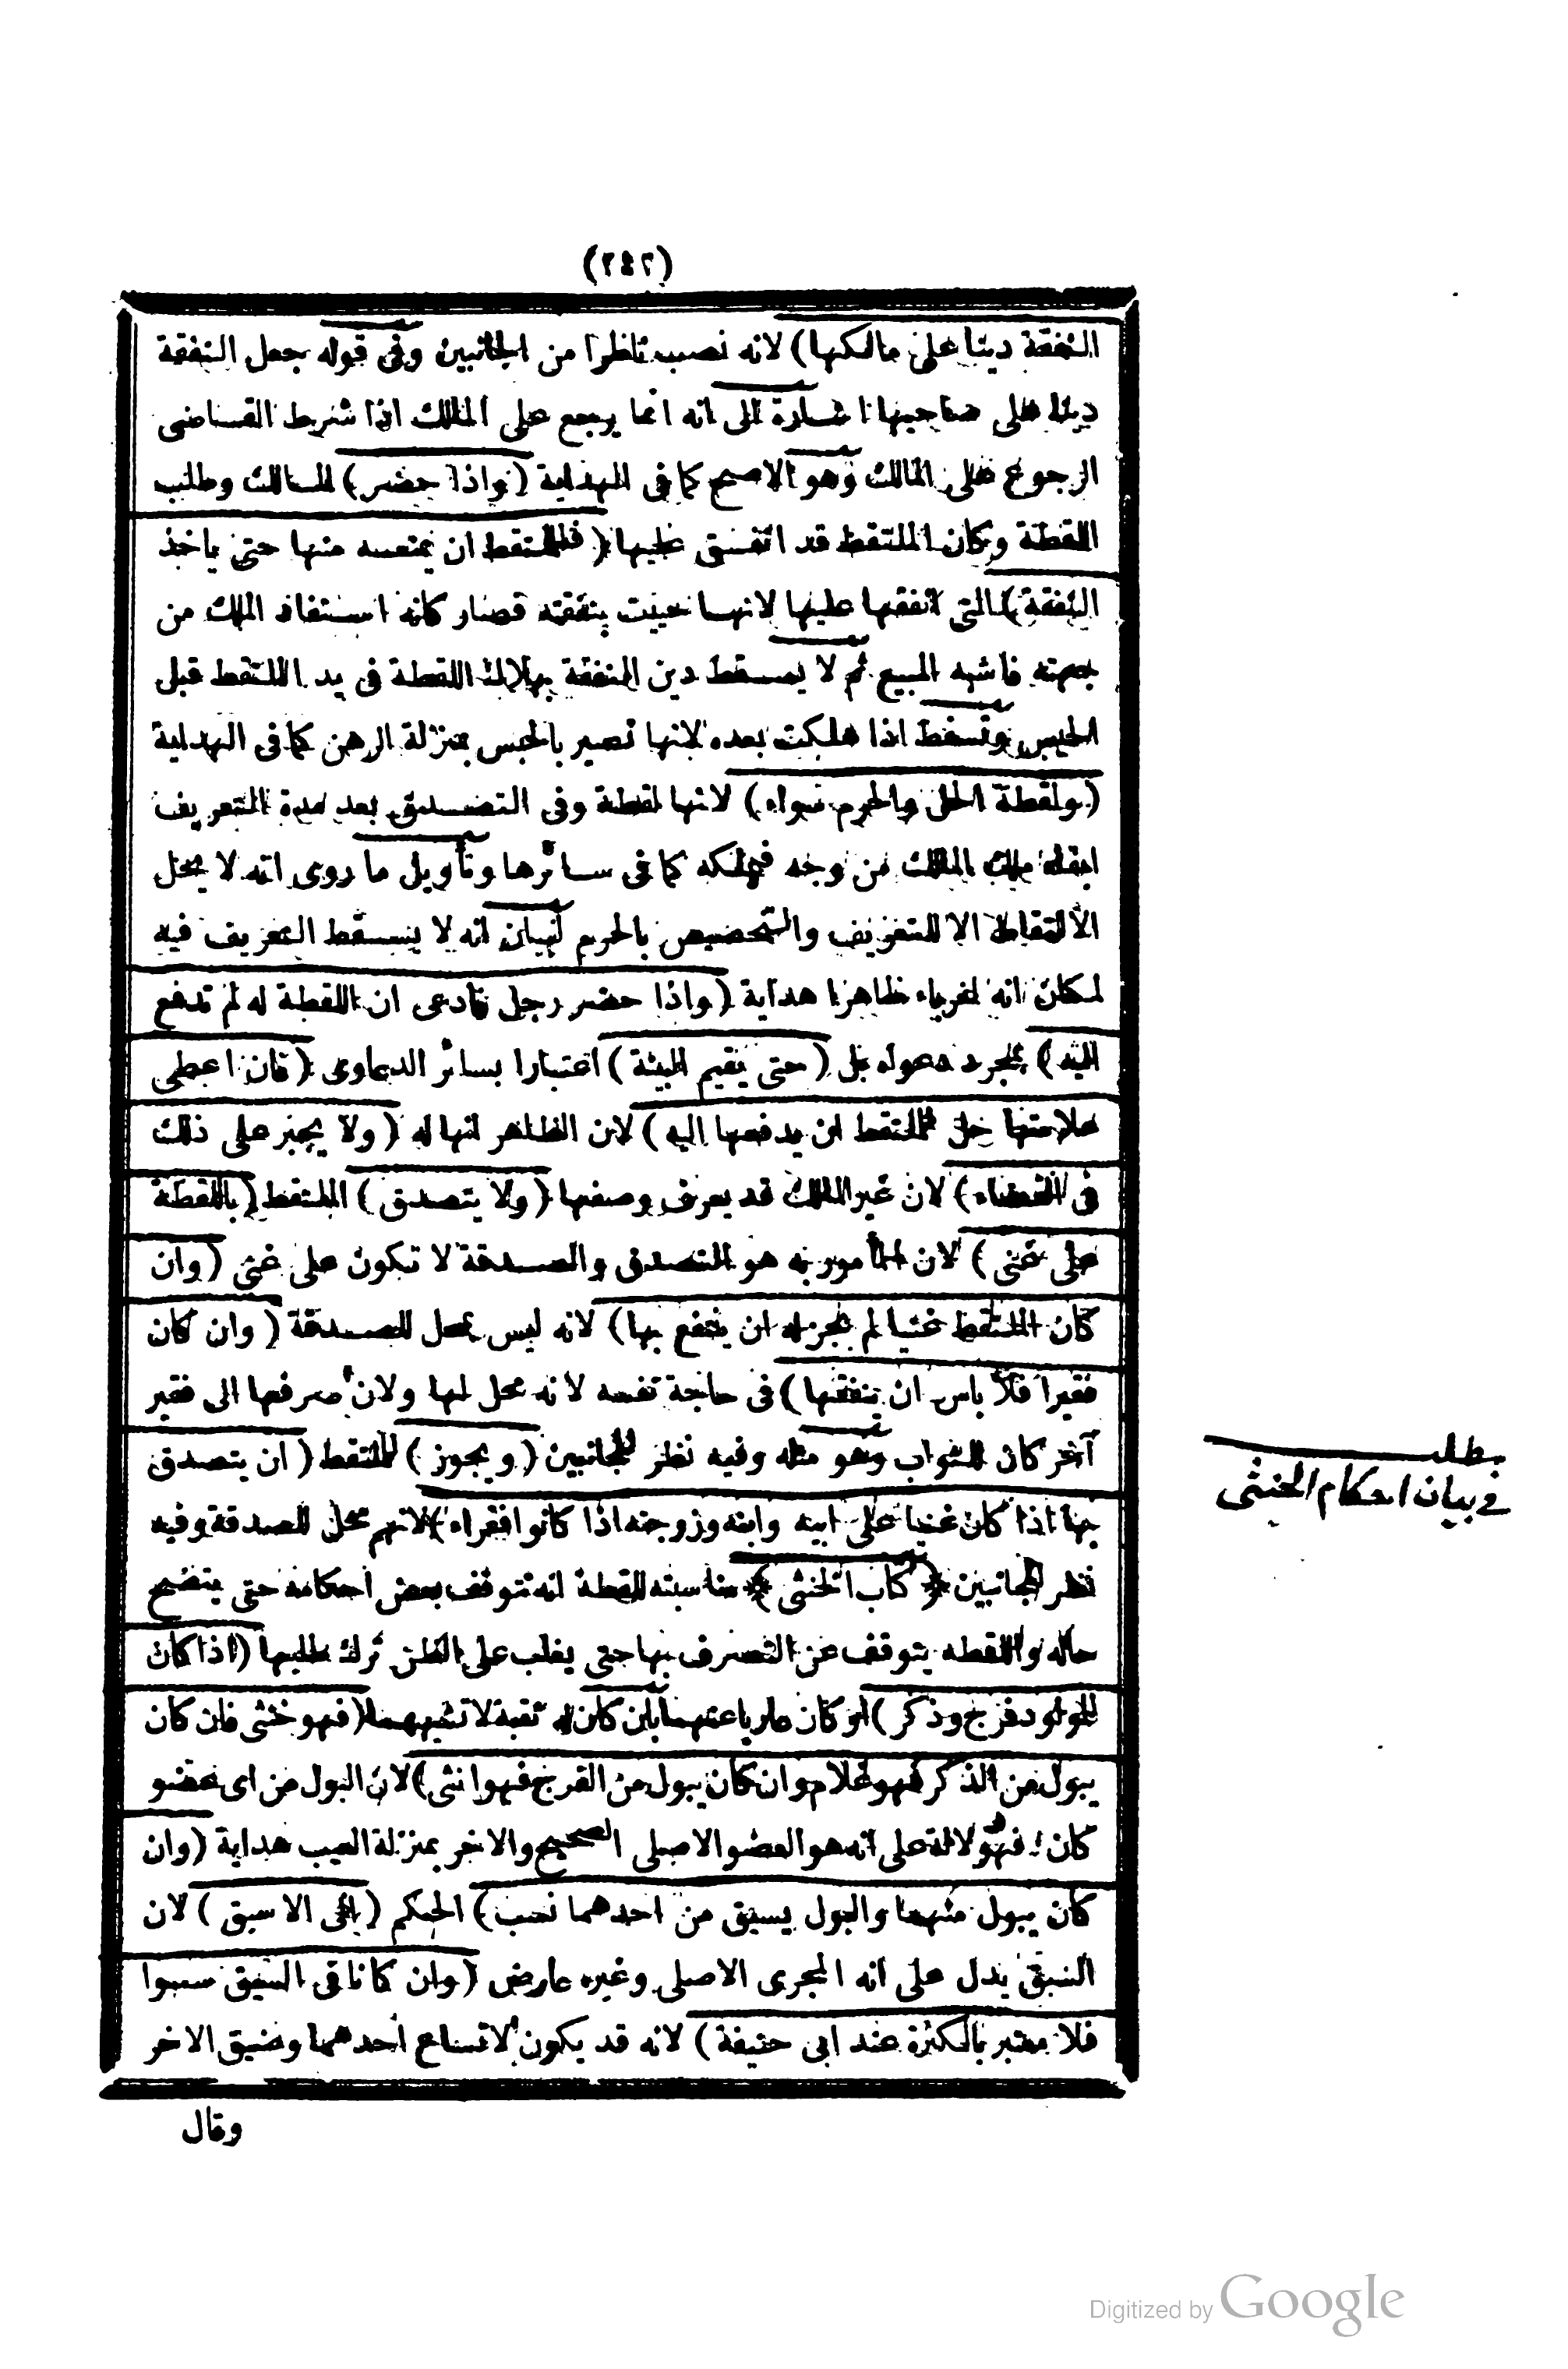 (٢٤٢)
النفقة دينا على مالكها) لانه نصب ناظرا من الجانبين وفى قوله جعل النفقة
دينا على صاحبها اشارة الى انه انما يرجع على المالك اذا شرط القاضى
الرجوع على المالك وهو الاصح كما فى الهداية (واذا حضر) المالك وطلب
اللقطة وكان الملتقط قد انفق عليها (فللملتقط ان يمنعه منها حتى ياخذ
النفقة) التى انفقها عليها لانها حييت بنفقته فصار كانه استفاد الملك من
جهته فاشبه المبيع ثم لا يسقط دين النفقة بهلاك اللقطة فى يد الملتقط قبل
الحبس وتسقط اذا هلكت بعده لانها تصير بالحبس بمنزلة الرهن كما فى الهداية
(ولقطة الحل والحرم سواء) لانها لقطة وفى التصدق بعد مدة التعريف
ابقاء ملك المالك من وجه فيملكه كما فى سائرها وتأويل ما روى انه لا يحل
الالتقاط الا للتعريف والتخصيص بالحرم لبيان انه لا يسقط التعريف فيه
لمكان انه لغرباء ظاهرا هداية (واذا حضر رجل فادعى ان اللقطة له لم تدفع
اليه) بمجرد دعواه بل (حتى يقيم البينة) اعتبارا بسائر الدعاوى (فان اعطى
علامتها حل للملتقط ان يدفعها اليه) لان الظاهر انها له (ولا يجبر على ذلك
فى القضاء) لان غير المالك قد يعرف وصفها (ولا يتصدق) الملتقط (باللقطة
على غنى) لان المأمور به هو التصدق والصدقة لا تكون على غنى (وان
كان الملتقط غنيا لم يجز له ان ينتفع بها) لانه ليس بمحل للصدقة (وان كان
فقيرا فلا باس ان ينفقها) فى حاجة نفسه لانه محل لها ولان صرفها الى فقير
آخر كان للثواب وهو مثله وفيه نظر للجانبين (ويجوز) للملتقط (ان يتصدق
بها اذا كان غنيا على ابيه وابنه وزوجته اذا كانوا فقراء) لانهم محل للصدقة وفيه
نظر للجانبين ﴿كتاب الخنثى﴾ مناسبته للقطة انه تتوقف بعض احكامه حتى يتضح
حاله واللقطه يتوقف عن التصرف بها حتى يغلب على الظن ترك طلبها (اذا كان
للمولود فرج وذكر) او كان عاريا عنهما بان كان له ثقبة لا تشبههما (فهو خنثى فان كان
يبول من الذكر فهو غلام وان كان يبول من الفرج فهو انثى) لان البول من اى عضو
كان فهو دلالة على انه هو العضو الاصلى الصحيح والاخر بمنزلة العيب هداية (وان
كان يبول منهما والبول يسبق من احدهما نسب) الحكم (الى الاسبق) لان
السبق يدل على انه المجرى الاصلى وغيره عارض (وان كانا فى السبق سوا
فلا معتبر بالكثرة عند ابى حنيفة) لانه قد يكون لاتساع احدهما وضيق الاخر
وقال
مطلب
فى بيان احكام الخنثى
Digitized by Google